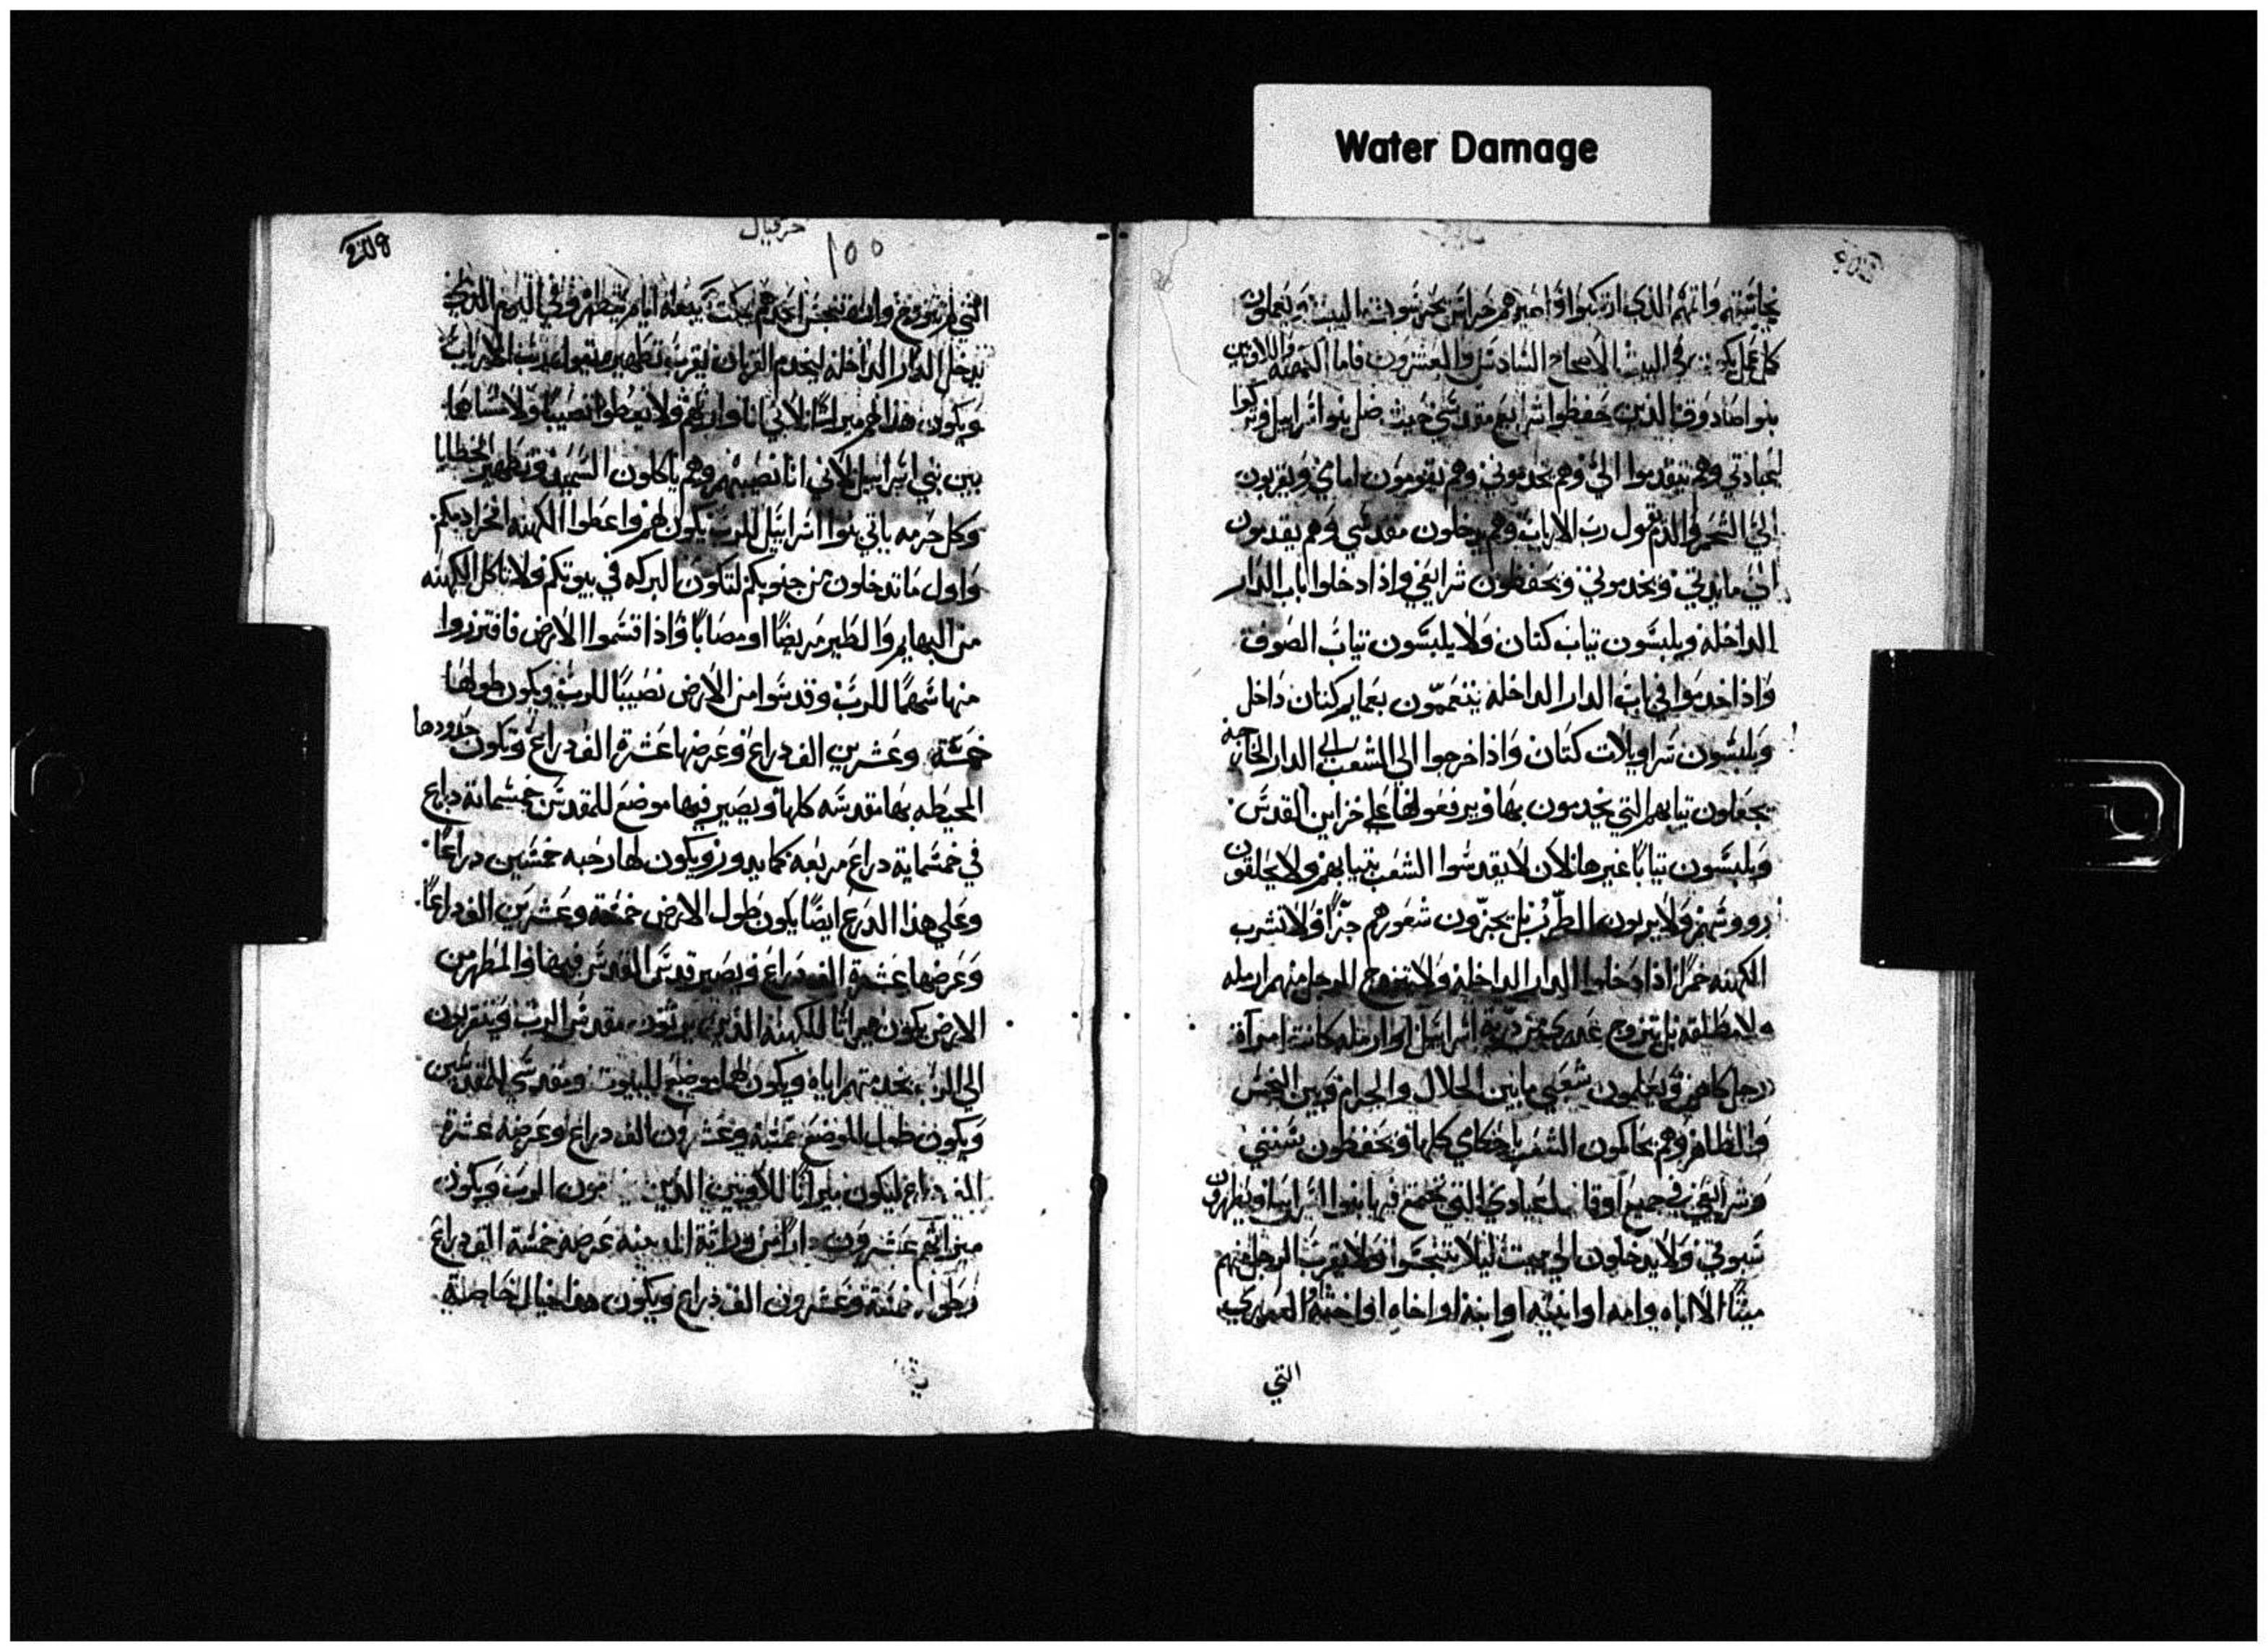 Water Damage
نجاستهم واتمهم الذي ارتكبوا واصيرهم حراس يحرسون البيت ويعملون
كل عمل في البيت الاصحاح السادس والعشرون فاما الكهنه واللاويين
بنوا صادوق الذين حفظوا شرايع مقدسي حيث ضل بنوا اسراييل وتركوا
عبادتي وهم يتقدموا الي وهم يخدموني وهم يقومون امامي ويقربون
الي الشحم والدم يقول رب الارباب وهم يدخلون مقدسي وهم يقدمون
الي مايدتي ويخدموني ويحفظون شرايعي واذا دخلوا باب الدار
الداخله ويلبسون تياب كتان ولا يلبسون تياب الصوف
واذا خدموا في باب الدار الداخله يتعممون بعمايم كتان داخل
ويلبسون سراويلات كتان واذا خرجوا الي الشعب الي الدار الخارجه
يجعلون تيابهم التي يخدمون بها ويرفعونها علي خزاين القدس
ويلبسون تيابا غيرها لان لا يقدسوا الشعب بتيابهم ولا يحلقون
رووسهم ولا يربون الطرز بل يجزون شعورهم جزا ولا تشرب
الكهنه خمرا اذا دخلوا الدار الداخله ولا يتزوج الرجل منهم ارمله
ولا مطلقه بل يتزوج عدري من ذرية اسراييل او ارمله كانت امرآة
رجل كاهن ويعلمون شعبي ما بين الحلال والحرام وبين النجس
والطاهر وهم يحاكمون الشعب باحكامي كلها ويحفظون سنني
وشرايعي في جميع اوقات اعيادي التي يجتمع فيها بنوا اسراييل ويطهرون
سبوتي ولا يدخلون الي ميت ليلا يتنجسوا ولا يقرب الرجل منهم
ميتا الا اباه وامه او ابنه او ابنته او اخاه او اخته العدري
التي
حزقيال
١٥٥
التي لم تتزوج وان تنجس احدهم يمكث سبعة ايام يتطهر وفي اليوم الذي
يدخل الدار الداخله ليخدم القربان يقرب تطهيره يقول رب الارباب
ويكون هذا لهم ميراثا لاني انا وارثهم ولا يعطوا نصيبا ولا سهاما
بين بني اسراييل لاني انا نصيبهم وهم ياكلون السميد وتطهير الخطايا
وكل حرمه ياتي بنوا اسراييل للرب يكون لهم واعطوا الكهنه انجزاديكم
واول ما تدخلون من جنوبكم لتكون البركه في بيوتكم ولا تاكل الكهنه
من البهايم والطير مريضا او مصابا واذا قسموا الارض فافترزوا
منها سهما للرب وقدسوا من الارض نصيبا للرب ويكون طولها
خمسة وعشرين الف دراع وعرضها عشرة الف دراع وتكون حدودها
المحيطه بها مقدسه كلها ويصير فيها موضع للمقدس خمسماية دراع
في خمسماية دراع مربعه كما يدور ويكون لها رحبه خمسين دراعا
وعلي هذا الدرع ايضا يكون طول الارض خمسة وعشرين الف دراعا
وعرضها عشرة الف دراع ويصير قدس القدس فيها والمطهر من
الارض يكون ميراثا للكهنه الذين يرثون مقدس الرب ويتقربون
الي الرب بخدمتهم اياه ويكون لهم موضع للبيوت ومقدسي للمقدسين
ويكون طول الموضع خمسة وعشرون الف دراع وعرضه عشرة
الف دراع ليكون ميراثا للاويين الذين يخدمون الرب ويكون
ميراثهم عشرون دارا من وراثة المدينه عرضه خمسة الف دراع
وطوله خمسة وعشرون الف دراع ويكون هذا حيال خاصة